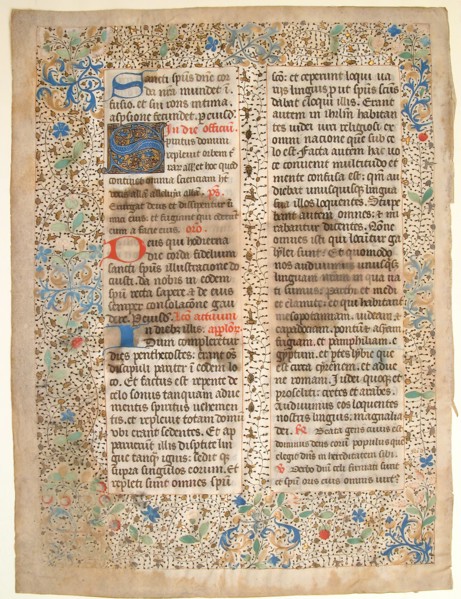 Sancti spūs dñe cor
da nr̄a mundet ī
fusio. et sui roris intima
aspersione fecundet. P eiusdē
In die officiū
Spiritus domini
repleuit orbem t̄
rar all' et hoc quod
continet omnia scienciam h̄t
alla alleluia alla. ps.
Exurgat deus et dissipentur i
mici eius. et fugiant qui oderūt
eum a facie eius. oro.
Deus qui hodierna
die corda fidelium
sancti spūs illustratione do
cuisti. da nobis in eodem
spū recta sapere & de eius
semper consolacōne gau
dere. P eiusd. Lcō actuum
In diebus illis. aplor
Dum complerentur
dies penthecostes: erant oēs
discipuli pariter ī eodem lo
co. Et factus est repente de
celo sonus tanquam adue
nientis spiritus uehemen
tis. et repleuit totam domū
vbi erant sedentes. Et ap
paruerūt illis dispertite lin
gue tanq̄ ignis: sedit q̄
supra singulos eorum. Et
repleti sunt omnes spū
scō: et ceperunt loqui ua
rijs linguis put spūs scūs
dabat eloqui illis. Erant
autem in ihrlm habitan
tes iudei viri religiosi ex
omni nacione que sub ce
lo est. Facta autem hac vo
ce conuenit multitudo et
mente confusa est: qm̄ au
diebat unusquisq̄ lingua
sua illos loquentes. Stupe
bant autem omnes: et mi
rabantur dicentes. Nōne
omnes isti qui locūtur ga
lylei sunt? Et quomodo
nos audiuimus unusq̄sq̄
linguam in qua na
ti sumus: Parthi et medi
et elamite. et qui habitant
mesopotamiam. iudeam et
capadociam. pontū et asyam
frigiam. et pamphiliam. e
gyptum. et ptes lybie que
est circa cyrenem. et adue
ne romani. Judei quoq̄ et
proseliti: cretes et arabes.
audiuimus eos loquentes
nostris linguis. magnalia
dei. R̄ Beata gens cuius est
dominus deus eorū populus que
elegit dn̄s in hereditatem sibi.
V̄ Verbo dn̄i celi firmati sunt
et spū oris eius omnis uirt?